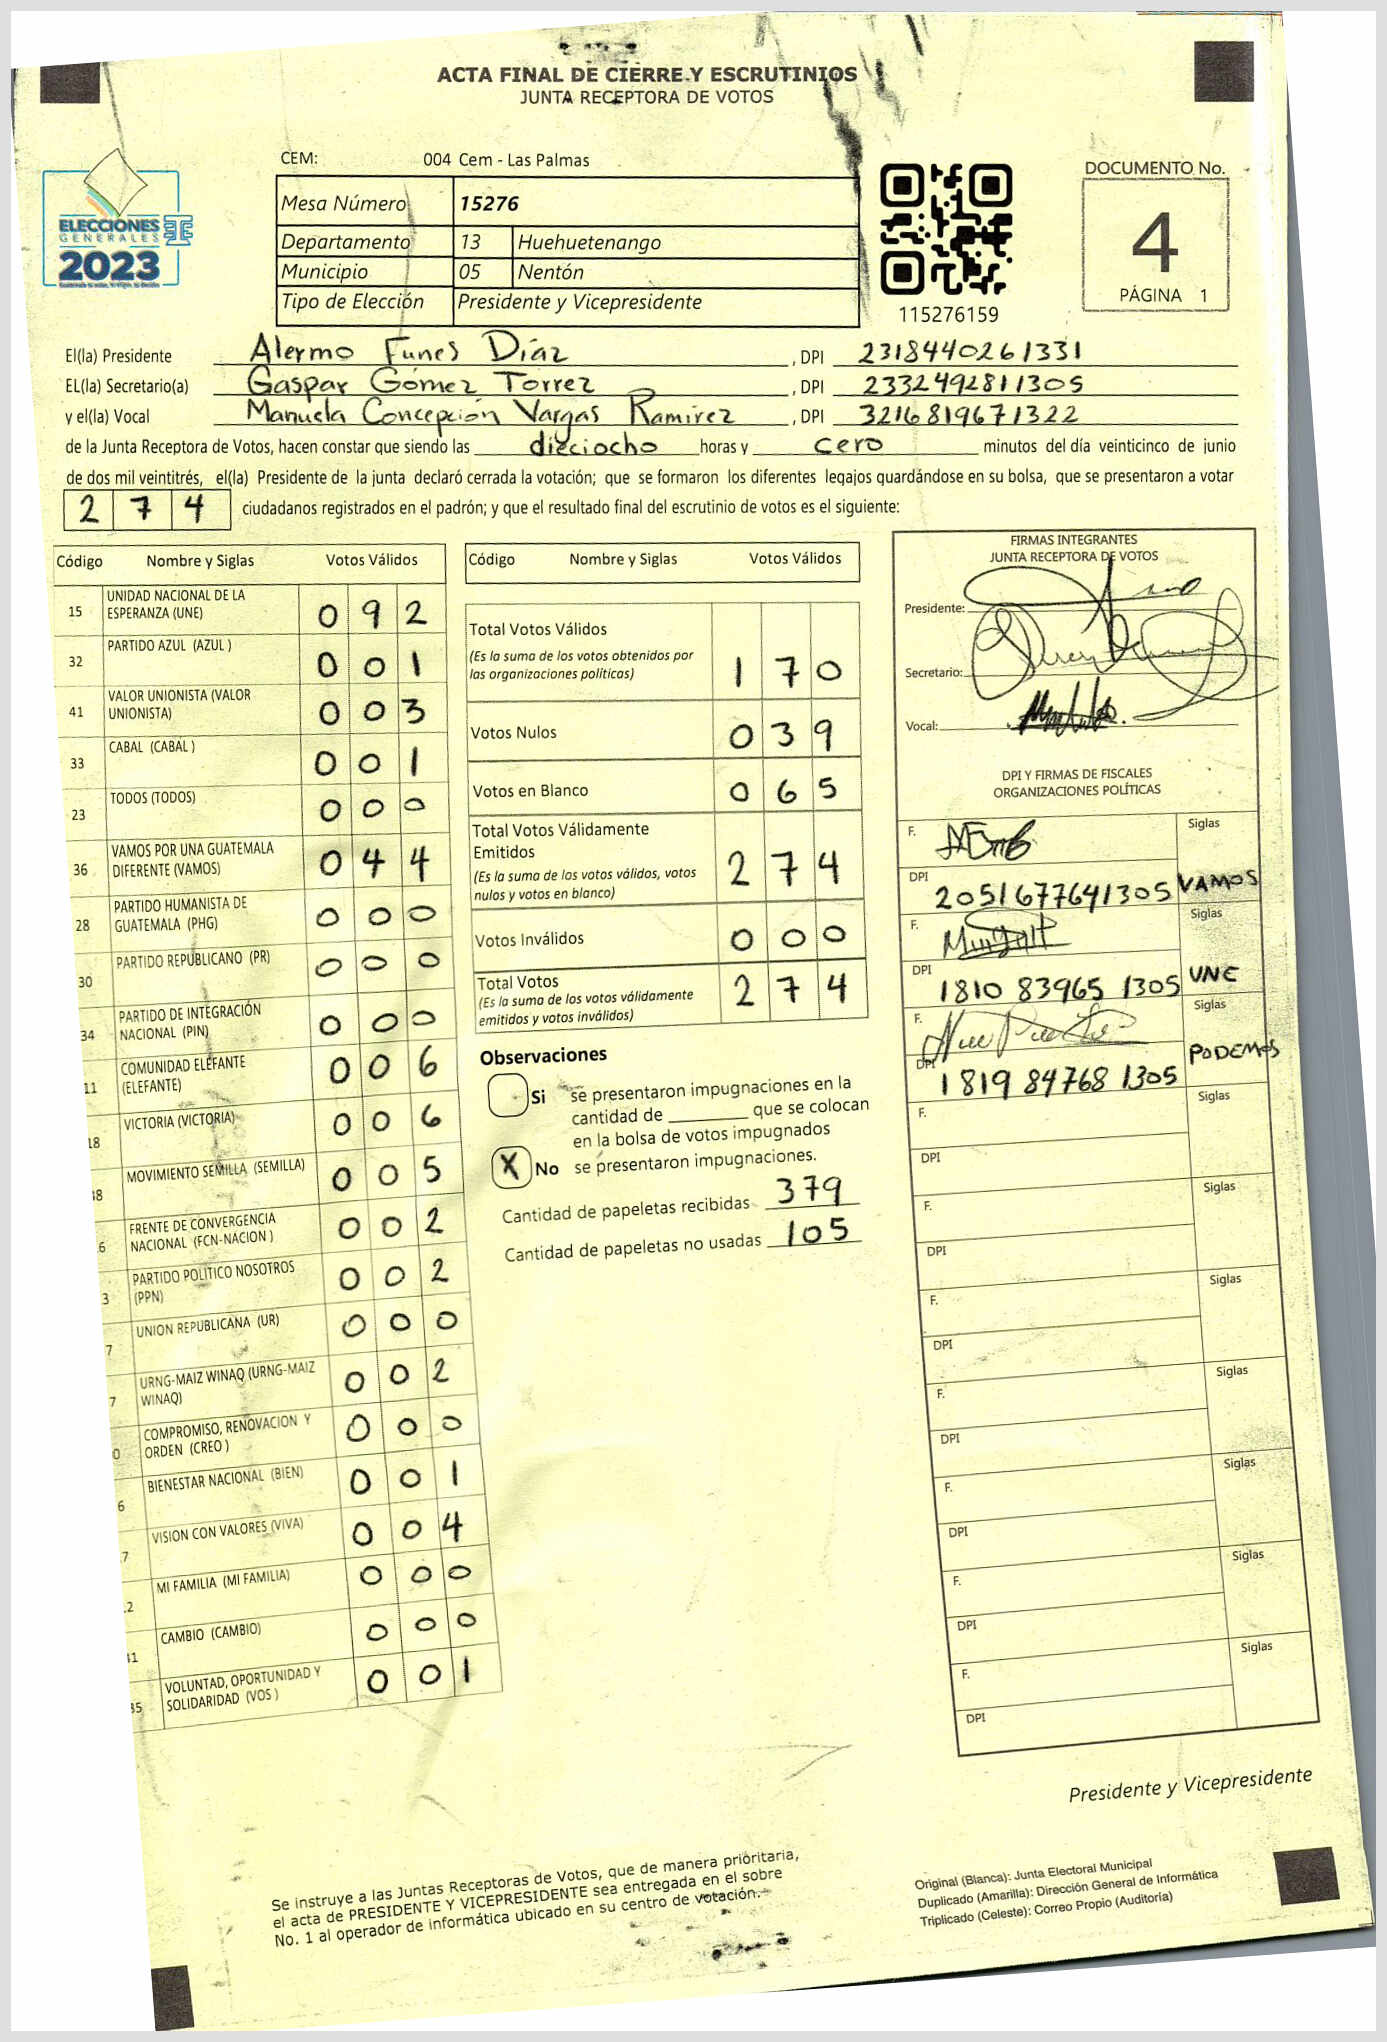 ACTA FINAL DE CIERRE Y ESCRUTINIOS
JUNTA RECEPTORA DE VOTOS
CEM: 004 Cem - Las Palmas
Mesa Número 15276
Departamento 13 Huehuetenango
Municipio 05 Nentón
Tipo de Elección Presidente y Vicepresidente
ELECCIONES
GENERALES
2023
115276159
DOCUMENTO No.
4
PÁGINA 1
El(la) Presidente Alermo Funes Díaz , DPI 2318440261331
EL(la) Secretario(a) Gaspar Gómez Torrez , DPI 2332492811305
y el(la) Vocal Manuela Concepción Vargas Ramirez , DPI 3216819671322
de la Junta Receptora de Votos, hacen constar que siendo las dieciocho horas y cero minutos del día veinticinco de junio
de dos mil veintitrés, el(la) Presidente de la junta declaró cerrada la votación; que se formaron los diferentes legajos guardándose en su bolsa, que se presentaron a votar
2 7 4 ciudadanos registrados en el padrón; y que el resultado final del escrutinio de votos es el siguiente:
Código Nombre y Siglas Votos Válidos
15 UNIDAD NACIONAL DE LA
ESPERANZA (UNE) 0 9 2
32 PARTIDO AZUL (AZUL ) 0 0 1
41 VALOR UNIONISTA (VALOR
UNIONISTA) 0 0 3
33 CABAL (CABAL ) 0 0 1
23 TODOS (TODOS) 0 0 0
36 VAMOS POR UNA GUATEMALA
DIFERENTE (VAMOS) 0 4 4
28 PARTIDO HUMANISTA DE
GUATEMALA (PHG) 0 0 0
30 PARTIDO REPUBLICANO (PR) 0 0 0
34 PARTIDO DE INTEGRACIÓN
NACIONAL (PIN) 0 0 0
11 COMUNIDAD ELEFANTE
(ELEFANTE) 0 0 6
18 VICTORIA (VICTORIA) 0 0 6
8 MOVIMIENTO SEMILLA (SEMILLA) 0 0 5
6 FRENTE DE CONVERGENCIA
NACIONAL (FCN-NACION ) 0 0 2
3 PARTIDO POLITICO NOSOTROS
(PPN) 0 0 2
7 UNION REPUBLICANA (UR) 0 0 0
7 URNG-MAIZ WINAQ (URNG-MAIZ
WINAQ) 0 0 2
0 COMPROMISO, RENOVACION Y
ORDEN (CREO ) 0 0 0
6 BIENESTAR NACIONAL (BIEN) 0 0 1
7 VISION CON VALORES (VIVA) 0 0 4
2 MI FAMILIA (MI FAMILIA) 0 0 0
1 CAMBIO (CAMBIO) 0 0 0
35 VOLUNTAD, OPORTUNIDAD Y
SOLIDARIDAD (VOS ) 0 0 1
Código Nombre y Siglas Votos Válidos
Total Votos Válidos
(Es la suma de los votos obtenidos por
las organizaciones políticas) 1 7 0
Votos Nulos 0 3 9
Votos en Blanco 0 6 5
Total Votos Válidamente
Emitidos
(Es la suma de los votos válidos, votos
nulos y votos en blanco) 2 7 4
Votos Inválidos 0 0 0
Total Votos
(Es la suma de los votos válidamente
emitidos y votos inválidos) 2 7 4
Observaciones
Si se presentaron impugnaciones en la
cantidad de ________ que se colocan
en la bolsa de votos impugnados
X No se presentaron impugnaciones.
Cantidad de papeletas recibidas 379
Cantidad de papeletas no usadas 105
FIRMAS INTEGRANTES
JUNTA RECEPTORA DE VOTOS
Presidente:
Secretario:
Vocal:
DPI Y FIRMAS DE FISCALES
ORGANIZACIONES POLÍTICAS
F. Siglas
DPI 2051677641305 VAMOS
F. Siglas
DPI 1810 83965 1305 UNE
F. Siglas
DPI 1819 84768 1305 PODEMOS
F. Siglas
DPI
F. Siglas
DPI
F. Siglas
DPI
F. Siglas
DPI
F. Siglas
DPI
F. Siglas
DPI
F. Siglas
DPI
Presidente y Vicepresidente
Se instruye a las Juntas Receptoras de Votos, que de manera prioritaria,
el acta de PRESIDENTE Y VICEPRESIDENTE sea entregada en el sobre
No. 1 al operador de informática ubicado en su centro de votación.
Original (Blanca): Junta Electoral Municipal
Duplicado (Amarilla): Dirección General de Informática
Triplicado (Celeste): Correo Propio (Auditoría)